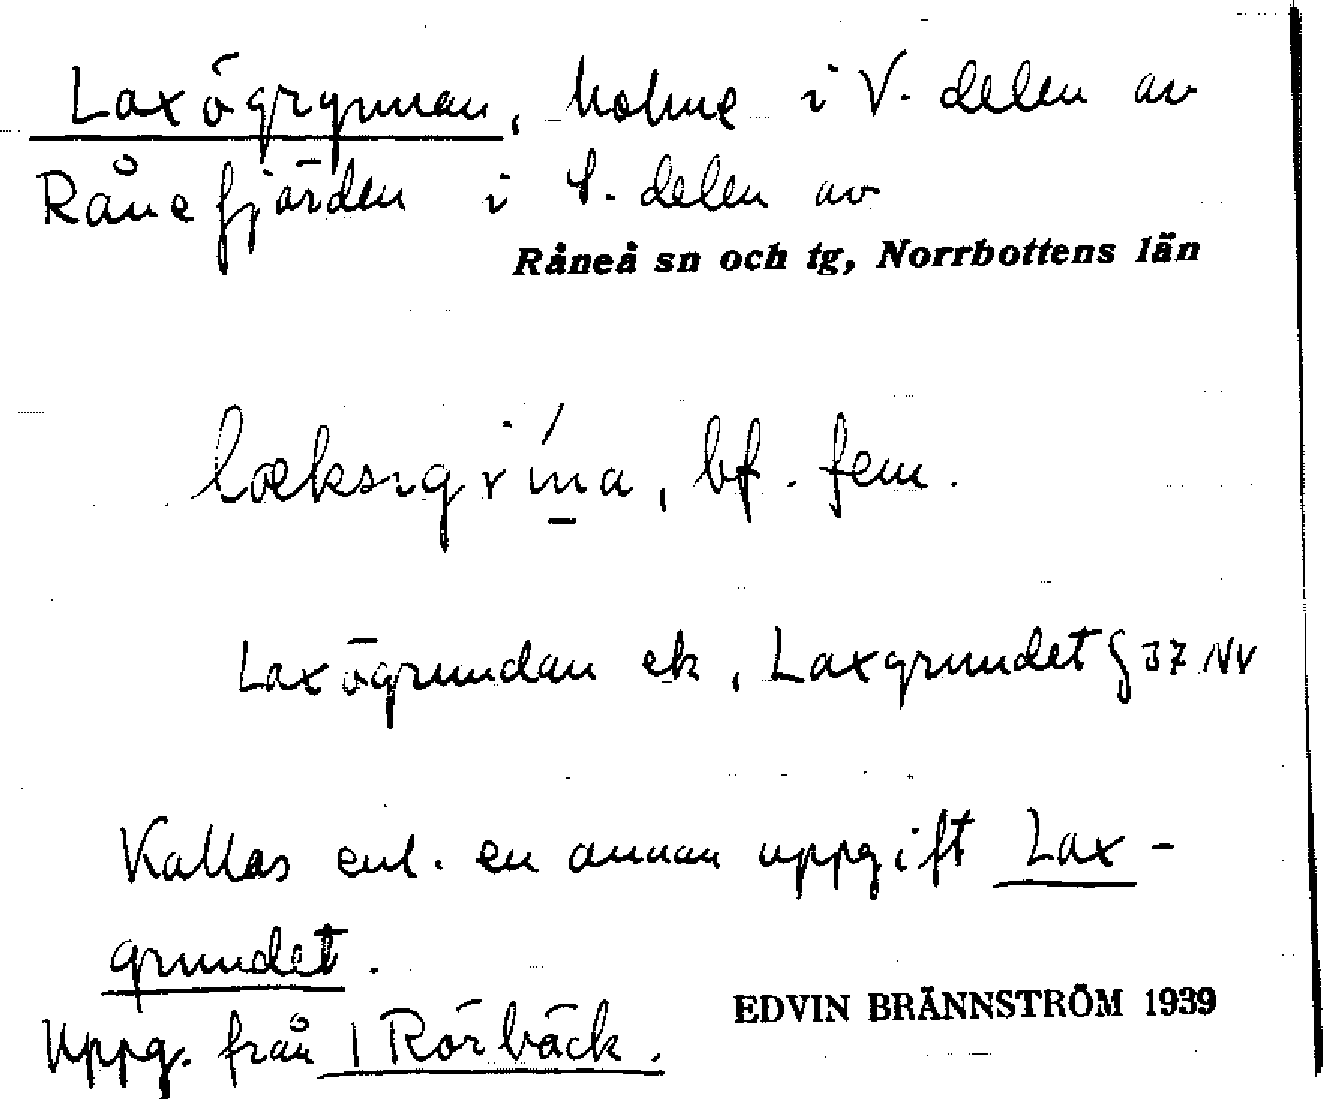 Laxögrynnan, holme i V. delen av
Rånefjärden i S. delen av
Råneå sn och tg, Norrbottens län
bf. fem.
Laxögrundan ek, Laxgrundet § 37 NV
Kallas enl. en annan uppgift Lax-
grundet.
EDVIN BRÄNNSTRÖM 1939
Uppg. från 1 Rörbäck.